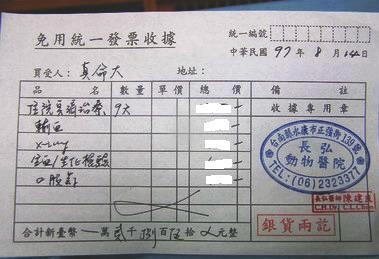 免用統一發票收據
統一編號
中華民國 97 年 8 月 14 日
買受人： 真命天 地址：
品名 數量 單價 總價 備註
住院 治療 9天
收據專用章
輸血
x-ray
全血/生化檢驗
口服
台南縣永康市正強街139號
長弘
動物醫院
TEL:(06)2323377
長弘獸醫師 陳建良
銀貨兩訖
合計新臺幣 萬 貳 千 捌 百 伍 拾 元整